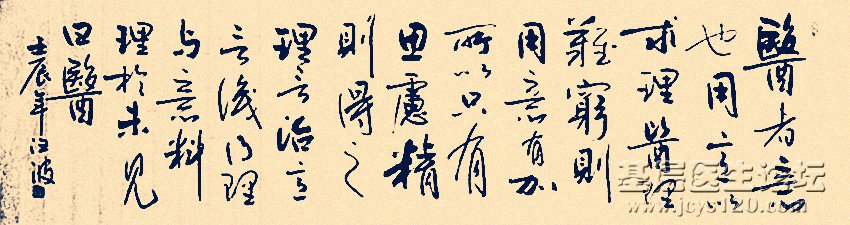 醫者意
也用意以
求理醫理
難窮則
用意有加
所以只有
思慮精
則得之
理言治意
言識理
与意料
理於未見
曰醫
壬辰年波
基层医生论坛
www.jcys120.com